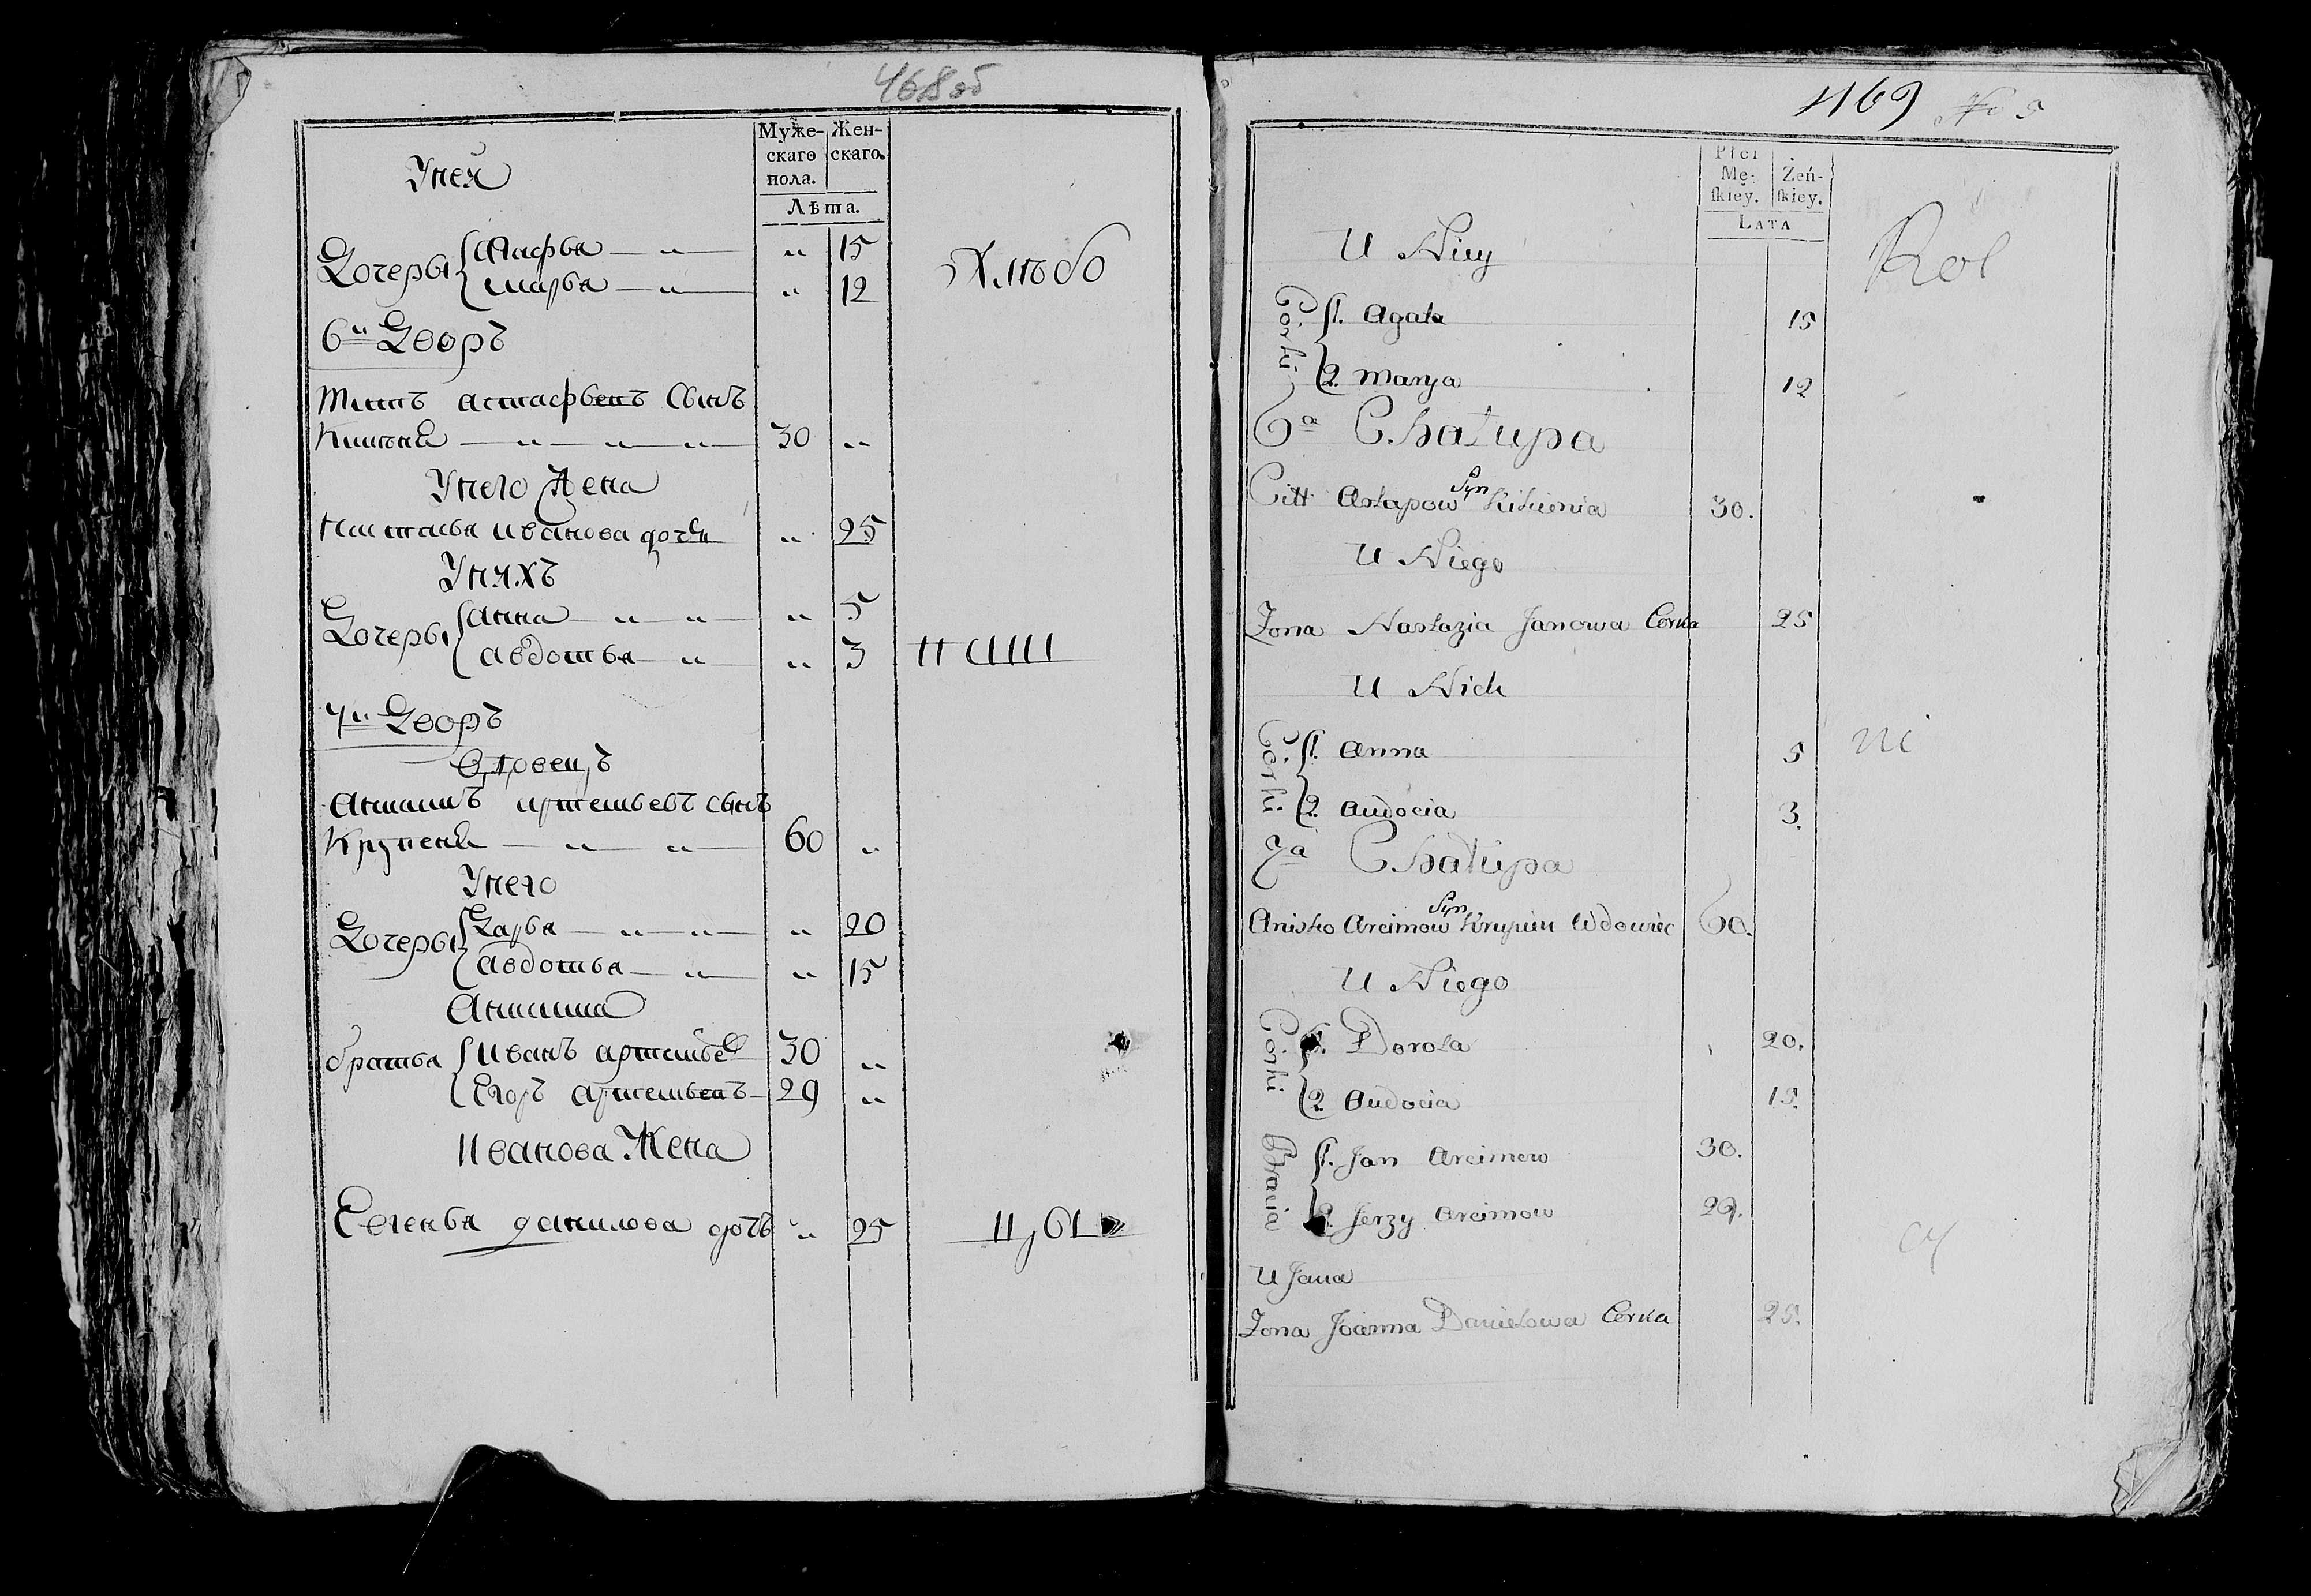 468 об
Муже-
скаго
пола.
Жен-
скаго.
Лѣта.
У ней
Дочеры
Агафья 15
Марья 12
Хлѣбо
6й Дворъ
Титъ Астафьевъ Сынъ
Кикеня 30
У него Жена
Настасья Иванова дочь 25
У нихъ
Дочеры
Анна 5
Авдотья 3
7й Дворъ
Вдовецъ
Артемьевъ Сынъ
Крупеня 60
У него
Дочеры
Дарья 20
Авдотья 15
Братья
Иванъ Артемьев 30
Егоръ Артемьевъ 29
Иванова Жена
Данилова дочь 25
469 No 5
Płci
Mę-
ſkiey.
Żeń-
ſkiey.
LATA
U Niey
Rol
Corki
1. Agata 15
2. Marya 12
6a Chałupa
Citt Astapow Syn Kikienia 30.
U Niego
Zona Nastazia Janowa Corka 25
U Nich
Corki
1. Anna 5
ni
2. Audocia 3.
7a Chałupa
Anisko Arcimow Syn Krupien Wdowiec 60.
U Niego
Corki
1. Dorota 20.
2. Audocia 15.
Bracia
1. Jan Arcimow 30.
2. Jerzy Arcimow 29.
U Jana
Zona Joanna Daniełowa Corka 25.